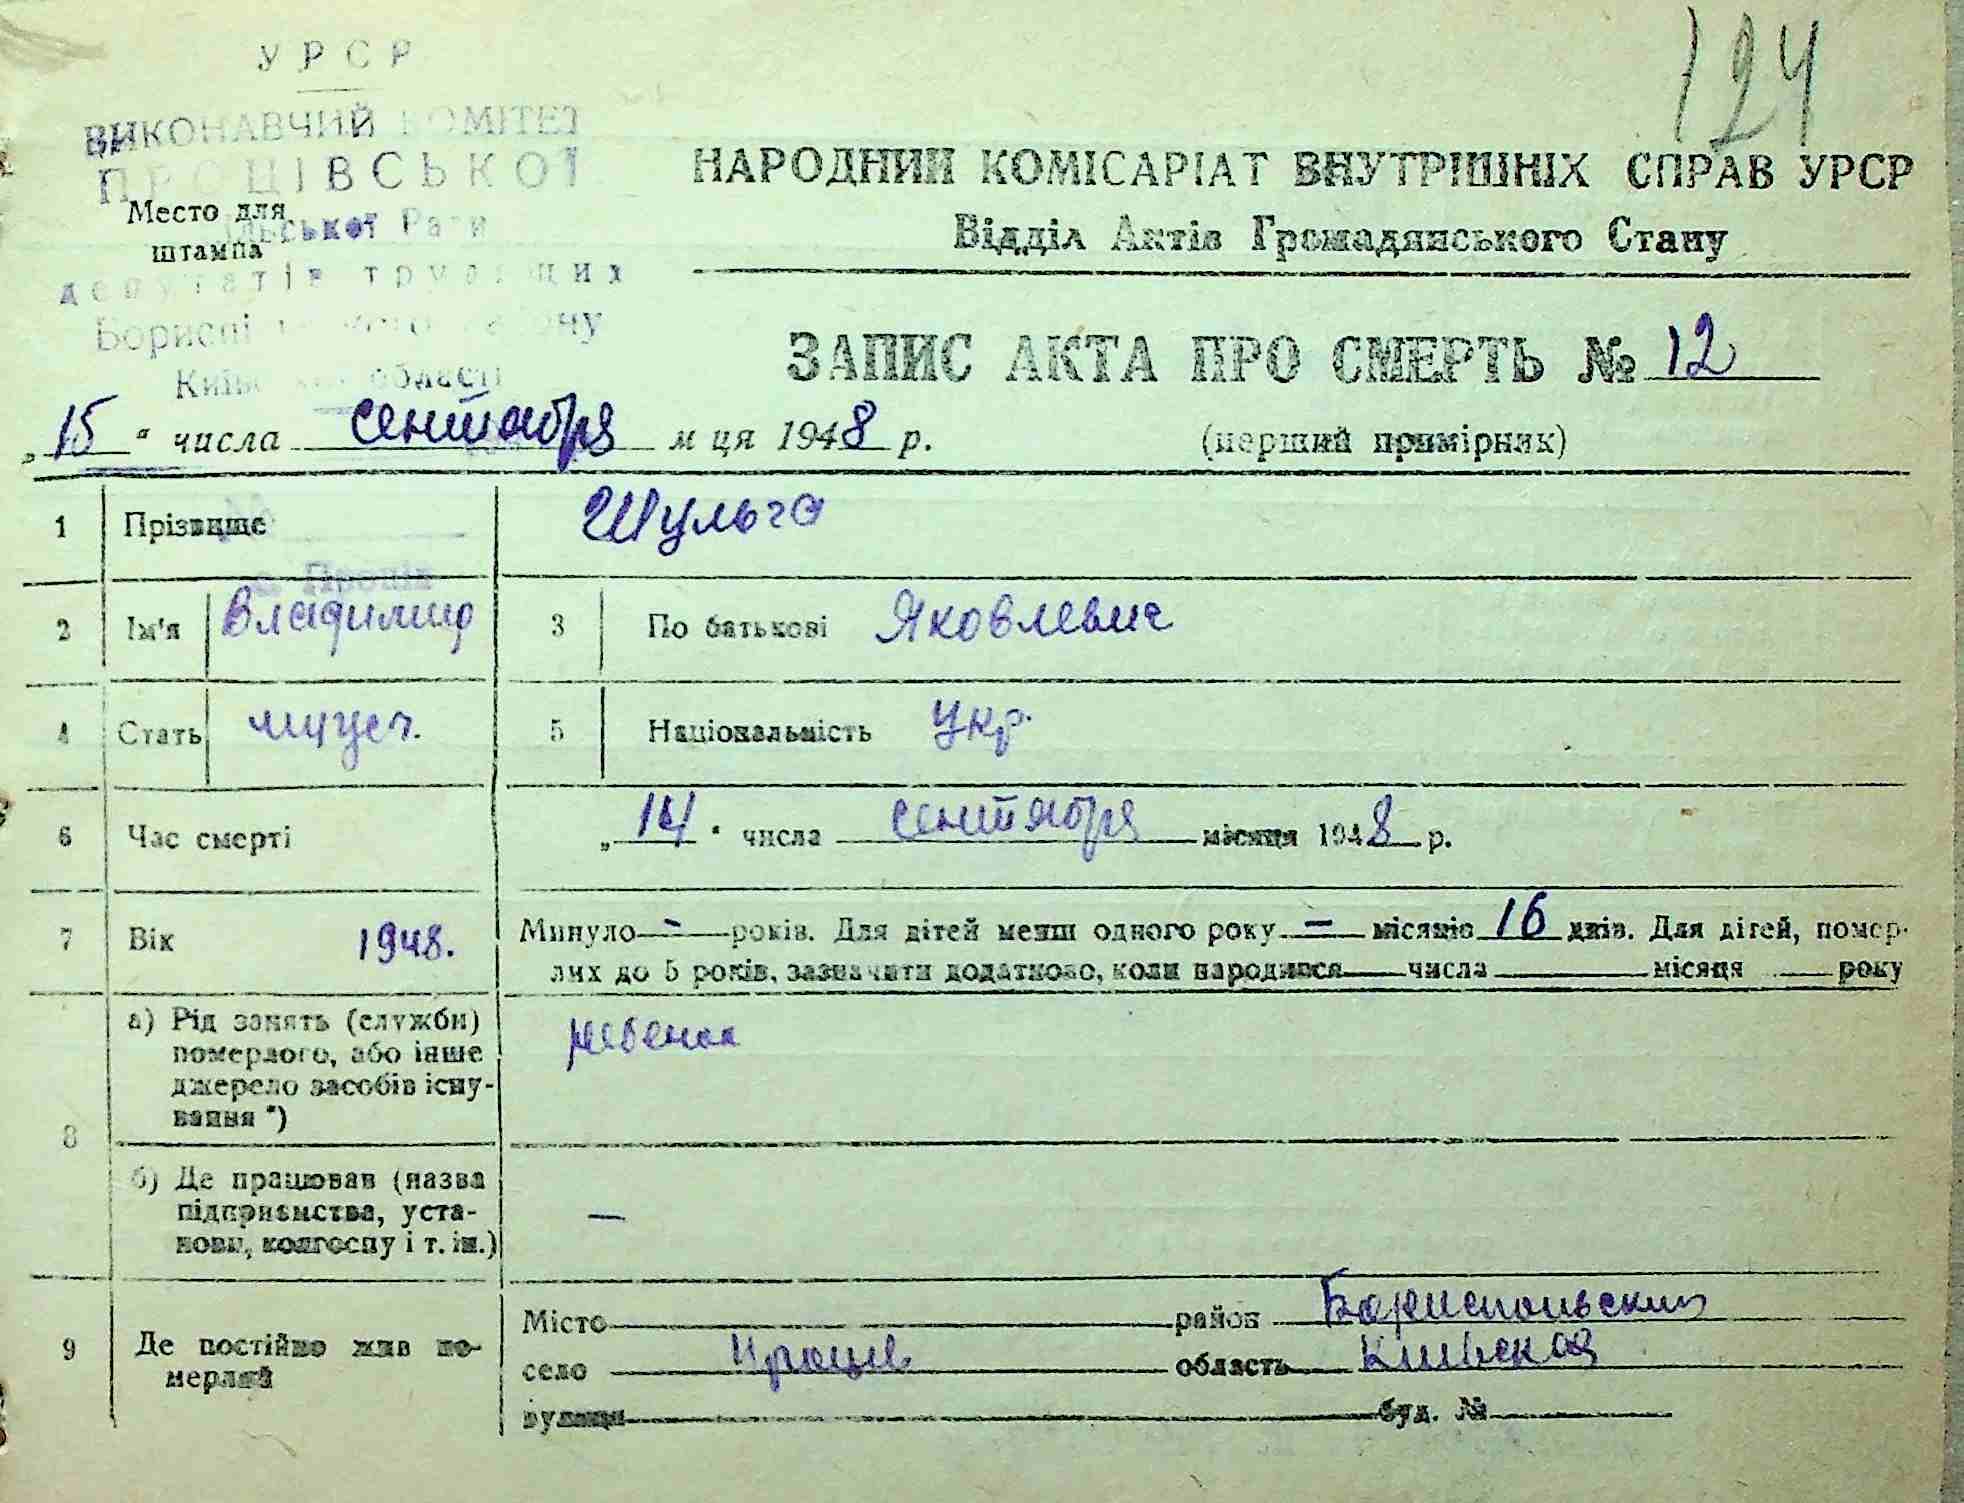 124
УРСР
ВИКОНАВЧИЙ КОМІТЕТ
ПРОЦІВСЬКОЇ
Место для
штампа
ільської Ради
депутатів трудящих
Бориспі
Київ області
с. Проців
НАРОДНИЙ КОМІСАРІАТ ВНУТРІШНІХ СПРАВ УРСР
Відділ Актів Громадянського Стану
ЗАПИС АКТА ПРО СМЕРТЬ № 12
„15“ числа сентября м ця 1948 р.
(перший примірник)
1 Прізвище Шульга
2 Ім'я Владимир 3 По батькові Яковлевич
4 Стать мужс. 5 Національність Укр.
6 Час смерті „14“ числа сентября місяця 1948 р.
7 Вік 1948. Минуло - років. Для дітей менш одного року - місяців 16 днів. Для дітей, помер-
лих до 5 років, зазначити додатково, коли народився числа місяця року
8 а) Рід занять (служби) ребенок
померлого, або інше
джерело засобів існу-
вання *)
б) Де працював (назва
підприємства, уста- —
нови, колгоспу і т. ін.)
9 Де постійно жив по-
мерлий
Місто район Бориспольский
село Процев область Киевская
вулиця буд. №